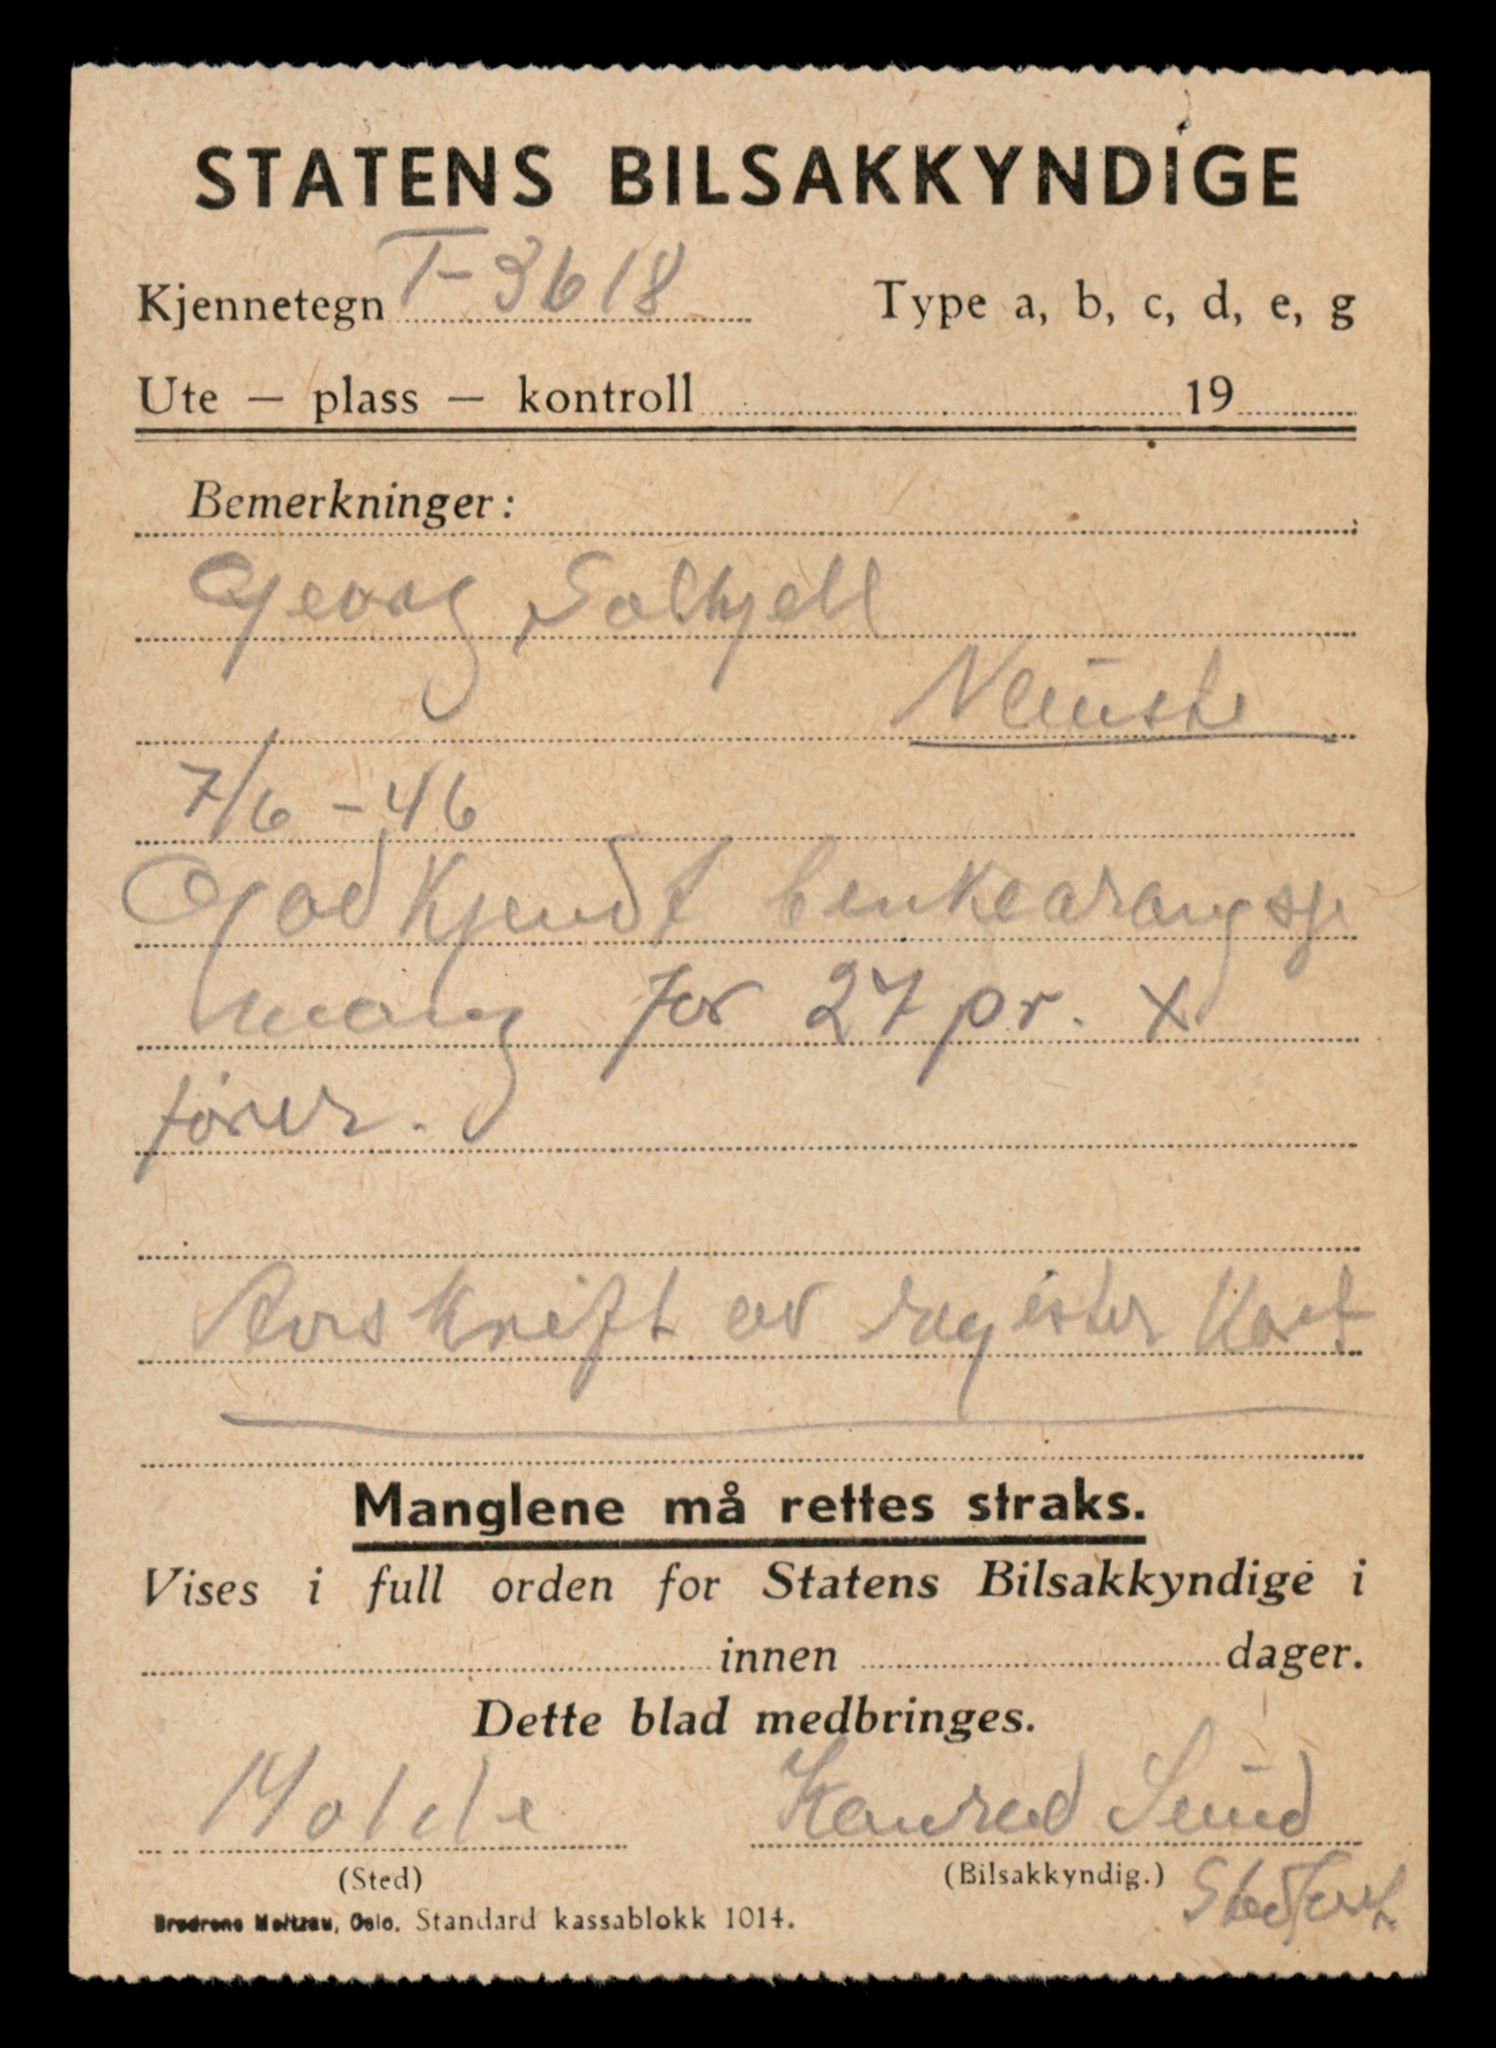 STATENS BILSAKKYNDIGE
Kjennetegn T-3618 Type a, b, c, d, e, g
Ute — plass — kontroll 19
Bemerkninger:
Georg Solhjell
7/6 - 46
Godkjendt benkearangsje
mang for 27 pr. x
fører.
Avskrift av register Kort
Manglene må rettes straks.
Vises i full orden for Statens Bilsakkyndige i
innen dager.
Dette blad medbringes.
Molde Konrad Sund
(Sted) (Bilsakkyndig.)
Brødrene Meltzau, Oslo. Standard kassablokk 1014.